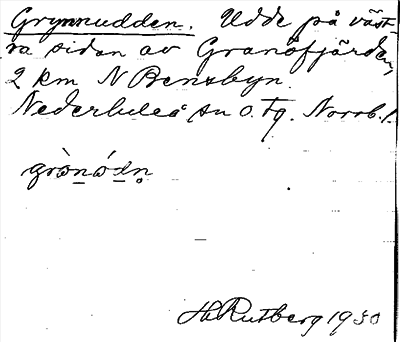 Grynnudden. Udde på väst-
ra sidan av Granöfjärden,
2 km N Bensbyn.
Nederluleå sn o. tg. Norrb. l.
H Rutberg 1930